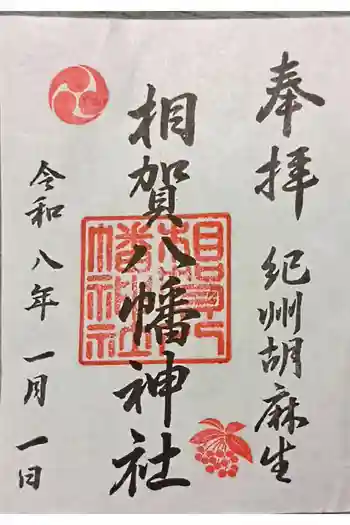 奉拝 紀州胡麻生
相賀八幡神社
令和八年一月一日
相賀八幡神社